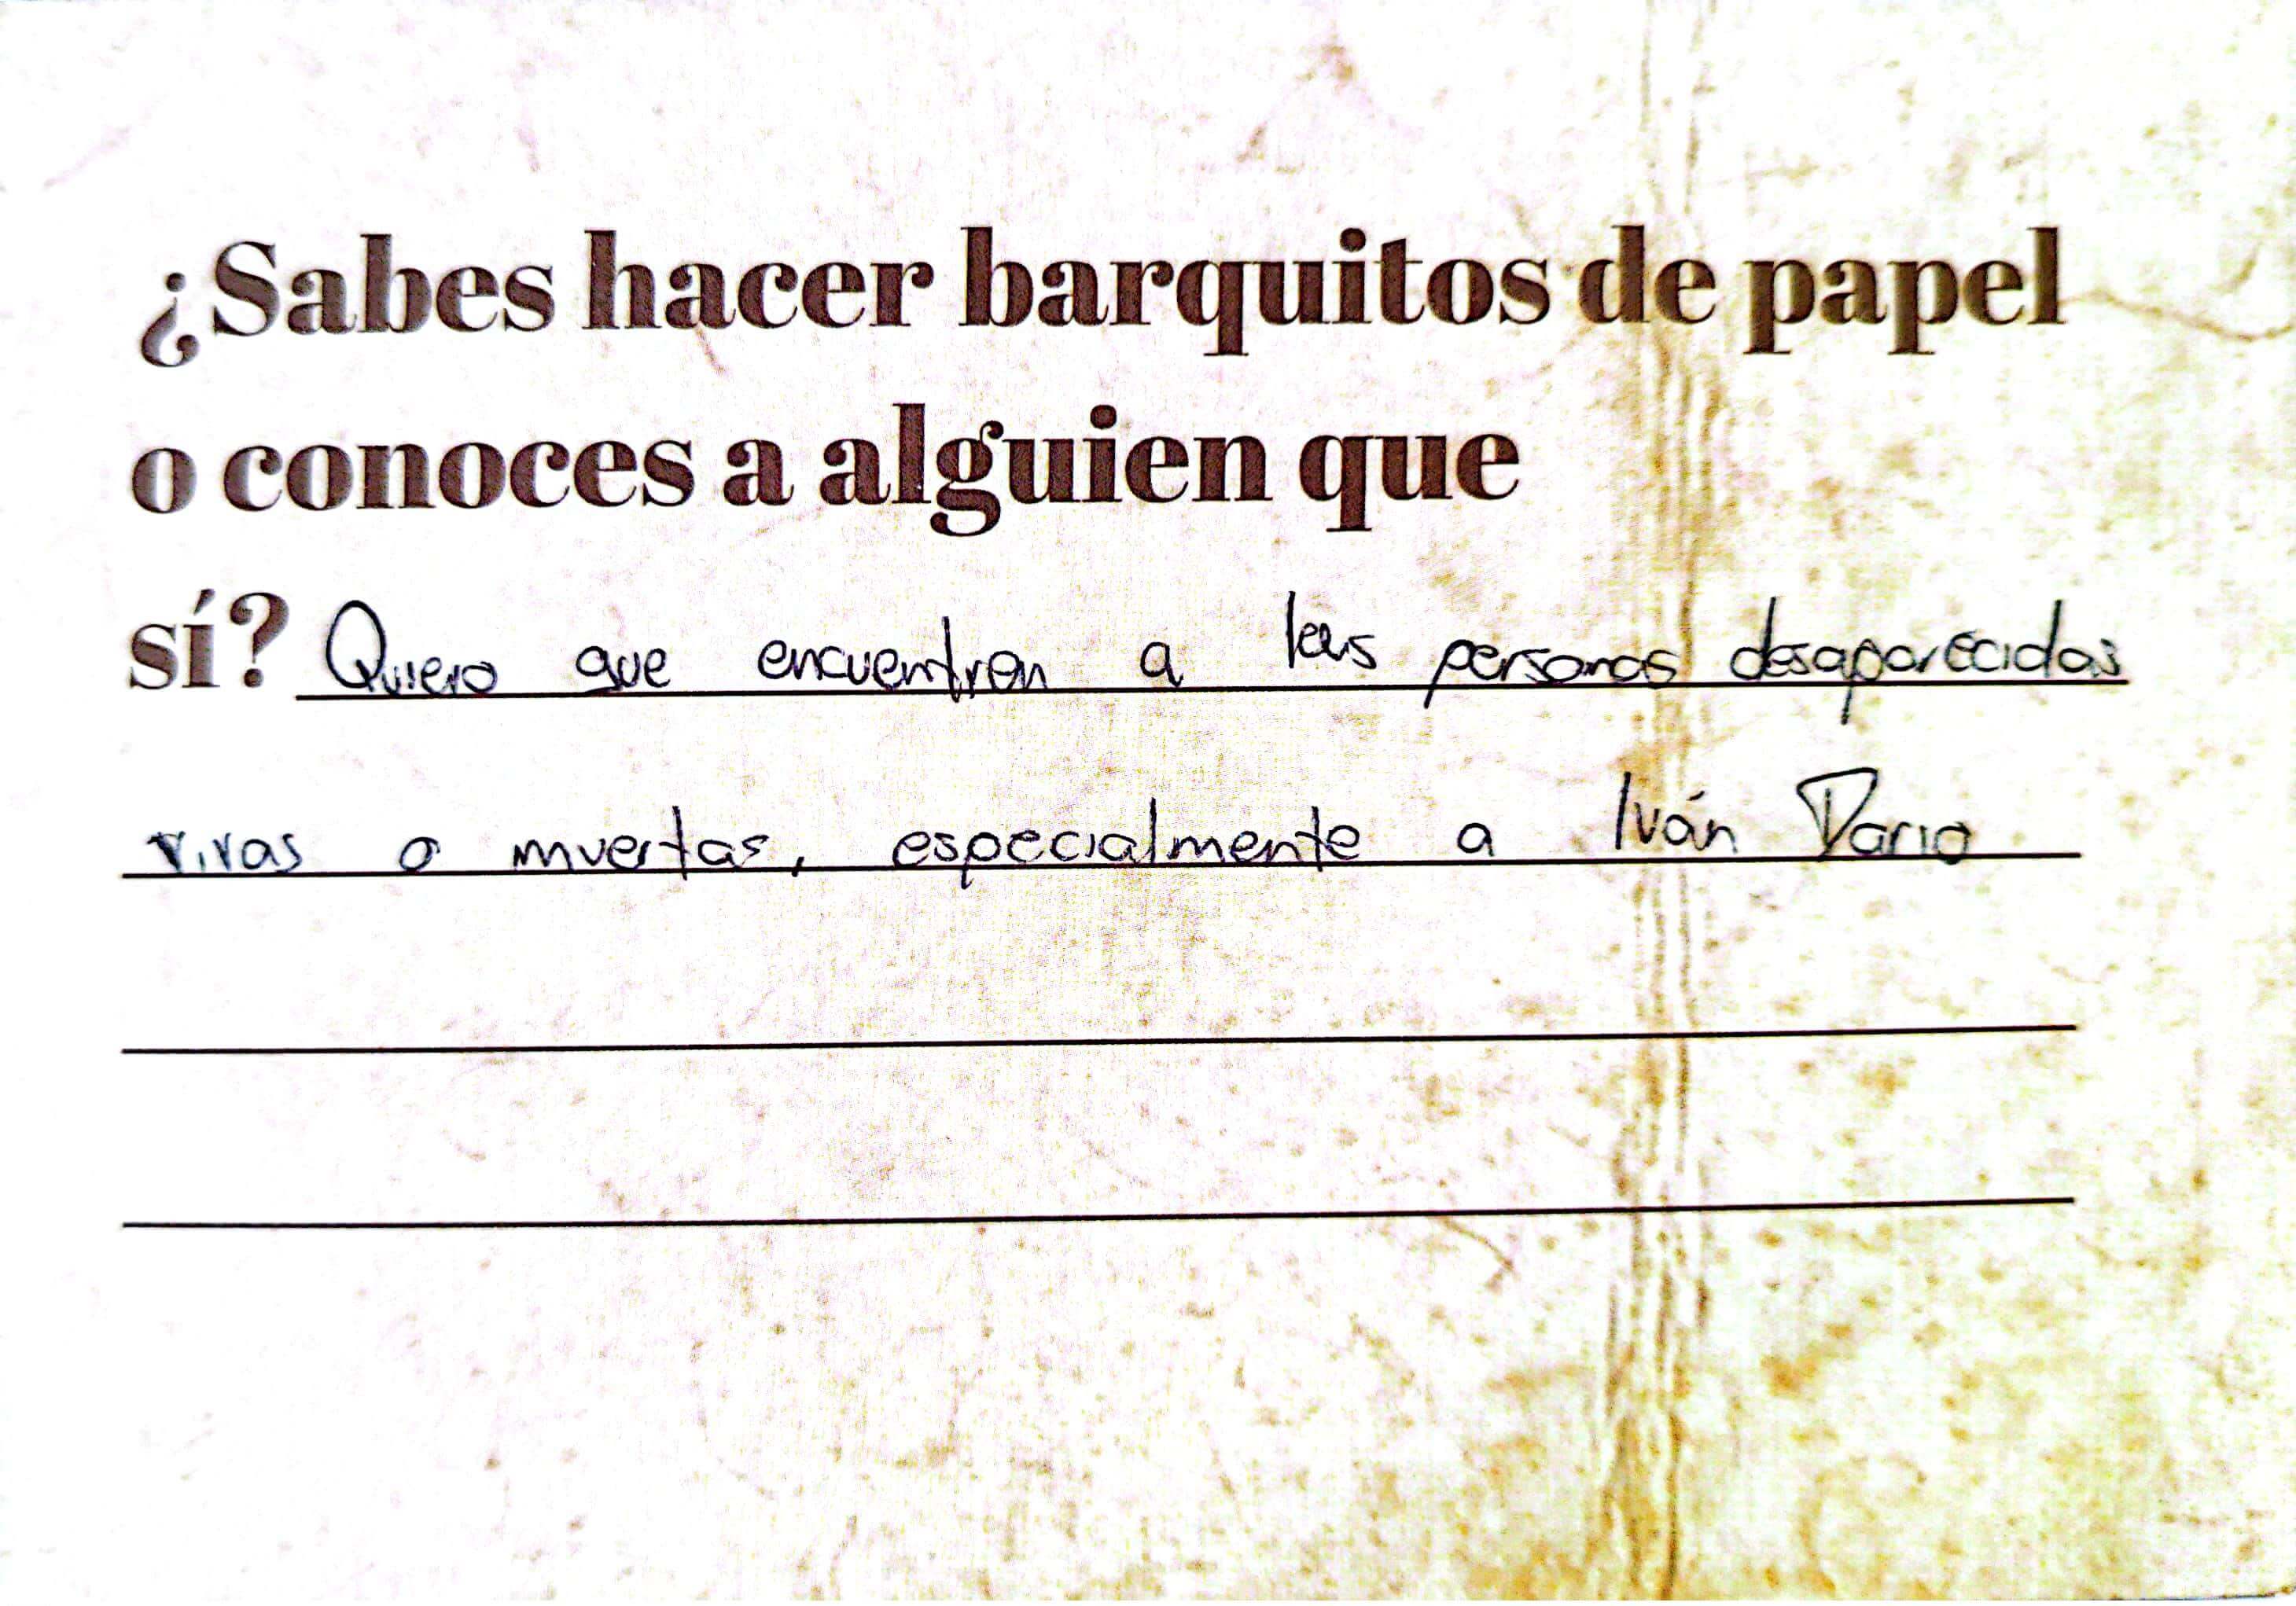 ¿Sabes hacer barquitos de papel
o conoces a alguien que
sí? Quiero que encuentren a las personas desaparecidas
vivas o muertas, especialmente a Iván Dario